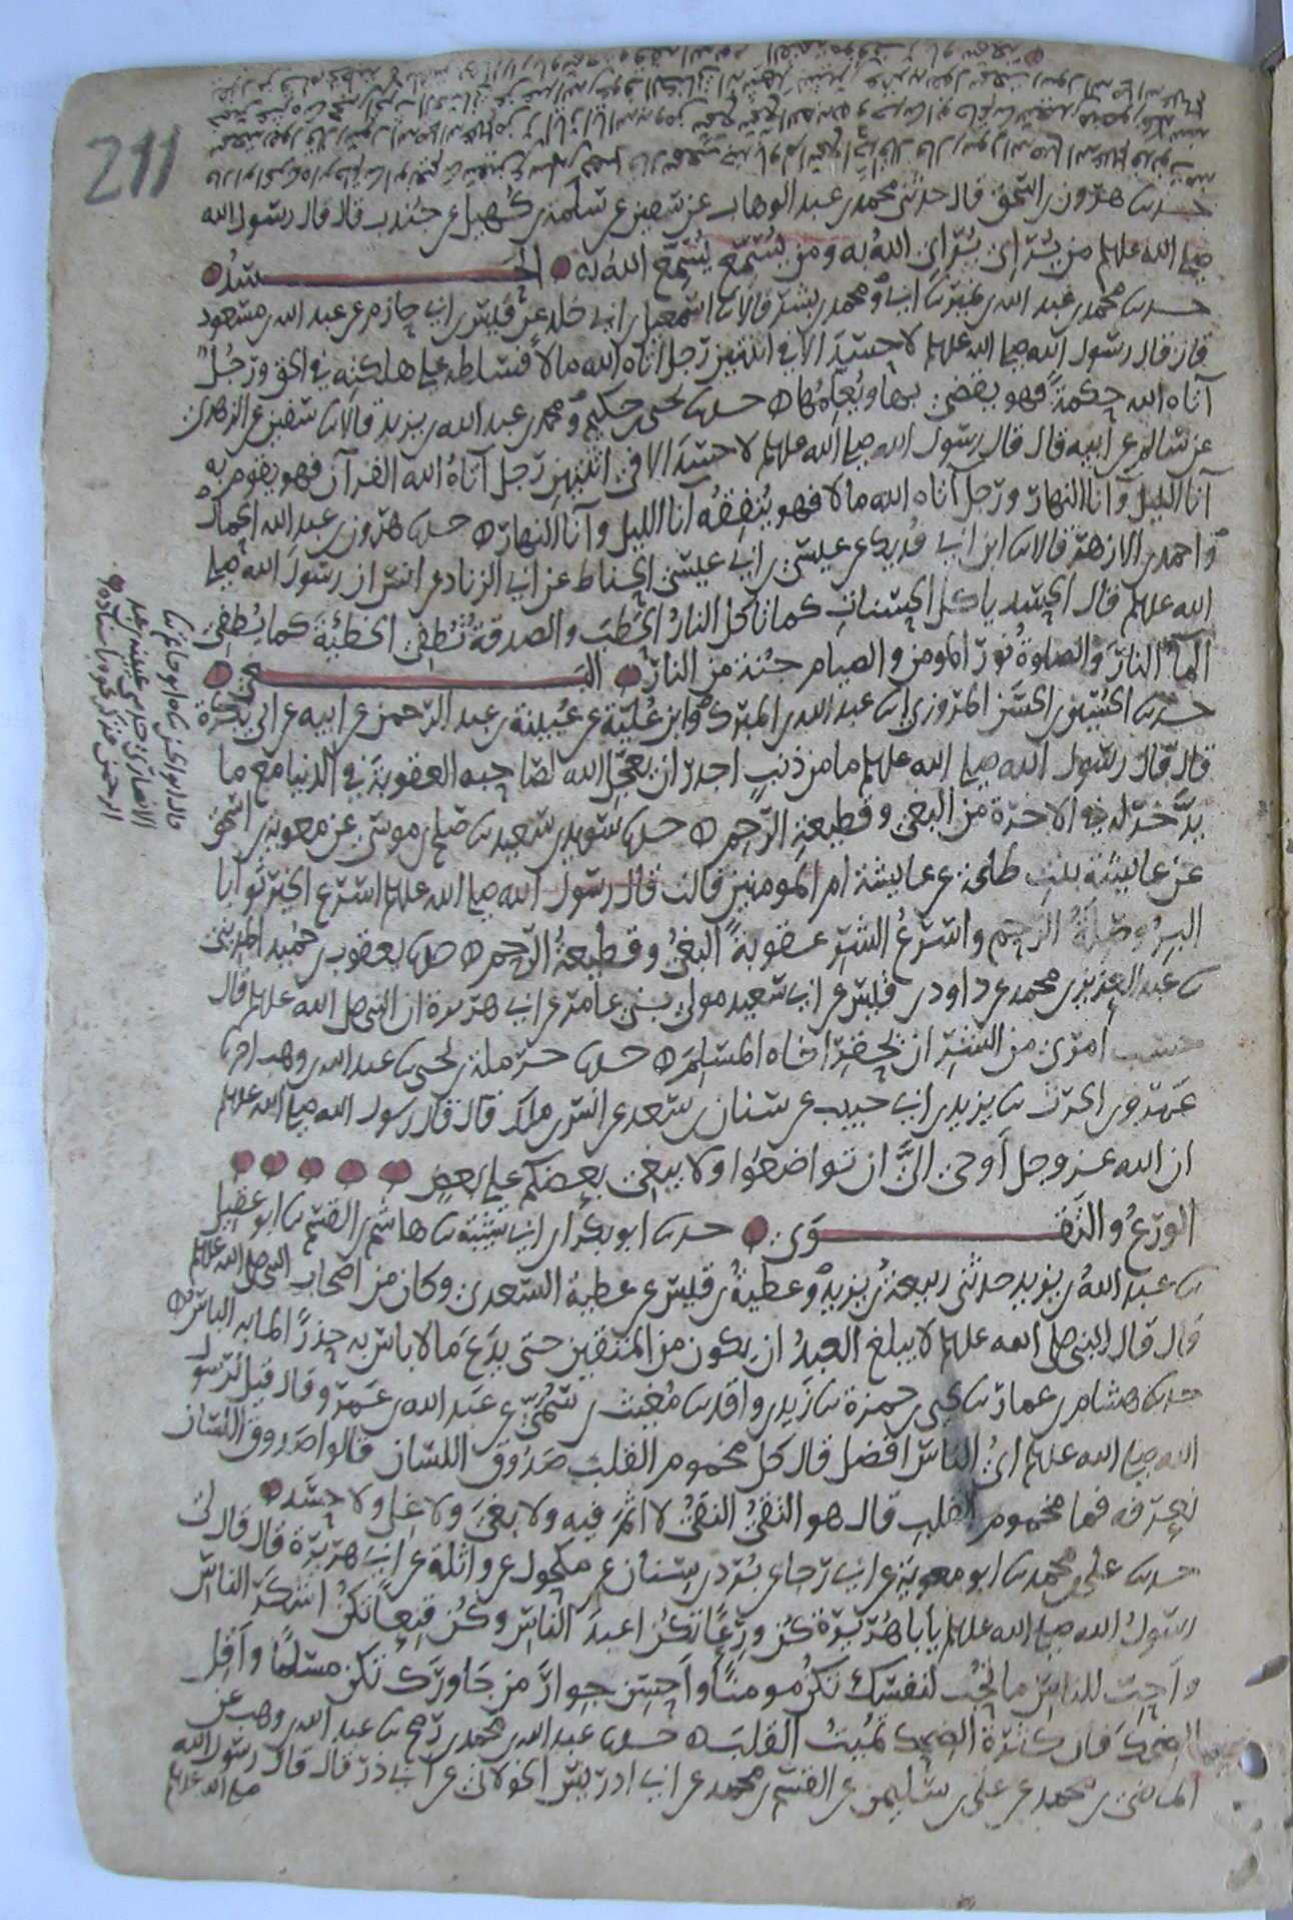 211
حدثنا هرون بن اسحق قال حدثني محمد بن عبد الوهاب عن سفين عن سلمة بن كهيل عن جندب قال قال رسول الله
صلى الله عليه من يرائي يرائي الله به ومن يسمع يسمع الله به الحسد
حدثنا محمد بن عبد الله بن نمير ثنا ابي ومحمد بن بشر قالا ثنا اسمعيل بن ابي خلد عن قيس بن ابي حازم عن عبد الله بن مسعود
قال قال رسول الله صلى الله عليه لا حسد الا في اثنتين رجل اتاه الله مالا فسلطه على هلكته في الحق ورجل
آتاه الله حكمة فهو يقضي بها ويعلمها حدثنا يحيى بن حكيم ومحمد بن عبد الله بن يزيد قالا ثنا سفين عن الزهري
عن سالم عن ابيه قال قال رسول الله صلى الله عليه لا حسد الا في اثنتين رجل آتاه الله القرآن فهو يقوم به
آنا الليل وآنا النهار ورجل آتاه الله مالا فهو ينفقه انا الليل وآنا النهار حدثنا هرون بن عبد الله الحمال
واحمد بن الازهر قالا ثنا ابن ابي فديك عن عيسى بن ابي عيسى الحناط عن ابي الزناد عن انس ان رسول الله صلى
الله عليه قال الحسد ياكل الحسنات كما تاكل النار الحطب والصدقة تطفئ الخطئة كما يطفئ
المآ النار والصلوة نور المومن والصيام جنة من النار البغي
حدثنا الحسين بن الحسن المروزي ثنا عبد الله بن المبرك وابن علية عن عيينة بن عبد الرحمن عن ابيه عن ابي بكرة
قال قال رسول الله صلى الله عليه ما من ذنب اجدر ان يعجل الله لصاحبه العقوبة في الدنيا مع ما
يدخر له في الاخرة من البغي وقطيعة الرحم حدثنا سويد بن سعيد ثنا صلح بن موسى عن معوية بن اسحق
عن عايشة بنت طلحة عن عايشة ام المومنين قالت قال رسول الله صلى الله عليه اسرع الخير ثوابا
البر وصلة الرحم واسرع الشر عقوبة البغي وقطيعة الرحم حدثنا يعقوب بن حميد المديني
ثنا عبد العزيز بن محمد عن داود بن قيس عن ابي سعيد مولى بني عامر عن ابي هريرة ان النبي صلى الله عليه قال
حسب امرئ من الشر ان يحقر اخاه المسلم حدثنا حرملة بن يحيى ثنا عبد الله بن وهب اخبرنا
عمرو بن الحرث ثنا يزيد بن ابي حبيب عن سنان بن سعد عن انس بن ملك قال قال رسول الله صلى الله عليه
ان الله عز وجل أوحى الي ان تواضعوا ولا يبغي بعضكم على بعض
الورع والتقوى حدثنا ابو بكر بن ابي شيبة ثنا هاشم بن القسم ثنا ابو عقيل
ثنا عبد الله بن يزيد حدثني ربيعة بن يزيد وعطية بن قيس عن عطية السعدي وكان من اصحاب النبي صلى الله عليه
قال قال النبي صلى الله عليه لا يبلغ العبد ان يكون من المتقين حتى يدع ما لا باس به حذرا لما به الباس
حدثنا هشام بن عمار ثنا يحيى بن حمزة ثنا زيد بن واقد ثنا مغيث بن سمي عن عبد الله بن عمرو قال قيل لرسول
الله صلى الله عليه اي الناس افضل قال كل مخموم القلب صدوق اللسان قالوا صدوق اللسان
نعرفه فما مخموم القلب قال هو التقي النقي لا اثم فيه ولا بغي ولا غل ولا حسد
حدثنا علي بن محمد ثنا ابو معوية عن ابي رجاء عن برد بن سنان عن مكحول عن واثلة عن ابي هريرة قال قال لي
رسول الله صلى الله عليه يابا هريرة كن ورعا تكن اعبد الناس وكن قنعا تكن اشكر الناس
واحب للناس ما تحب لنفسك تكن مومنا واحسن جوار من جاورك تكن مسلما واقل
الضحك فان كثرة الضحك تميت القلب حدثنا عبد الله بن محمد بن رمح ثنا عبد الله بن وهب عن
الماضي بن محمد عن علي بن سليمن عن القسم بن محمد عن ابي ادريس الخولاني عن ابي ذر قال قال رسول الله
صلى الله عليه
قال ابو الحسن ثنا ابو حاتم ثنا
الانصاري حدثني عيينة بن عبد
الرحمن فذكر نحوه باسناده